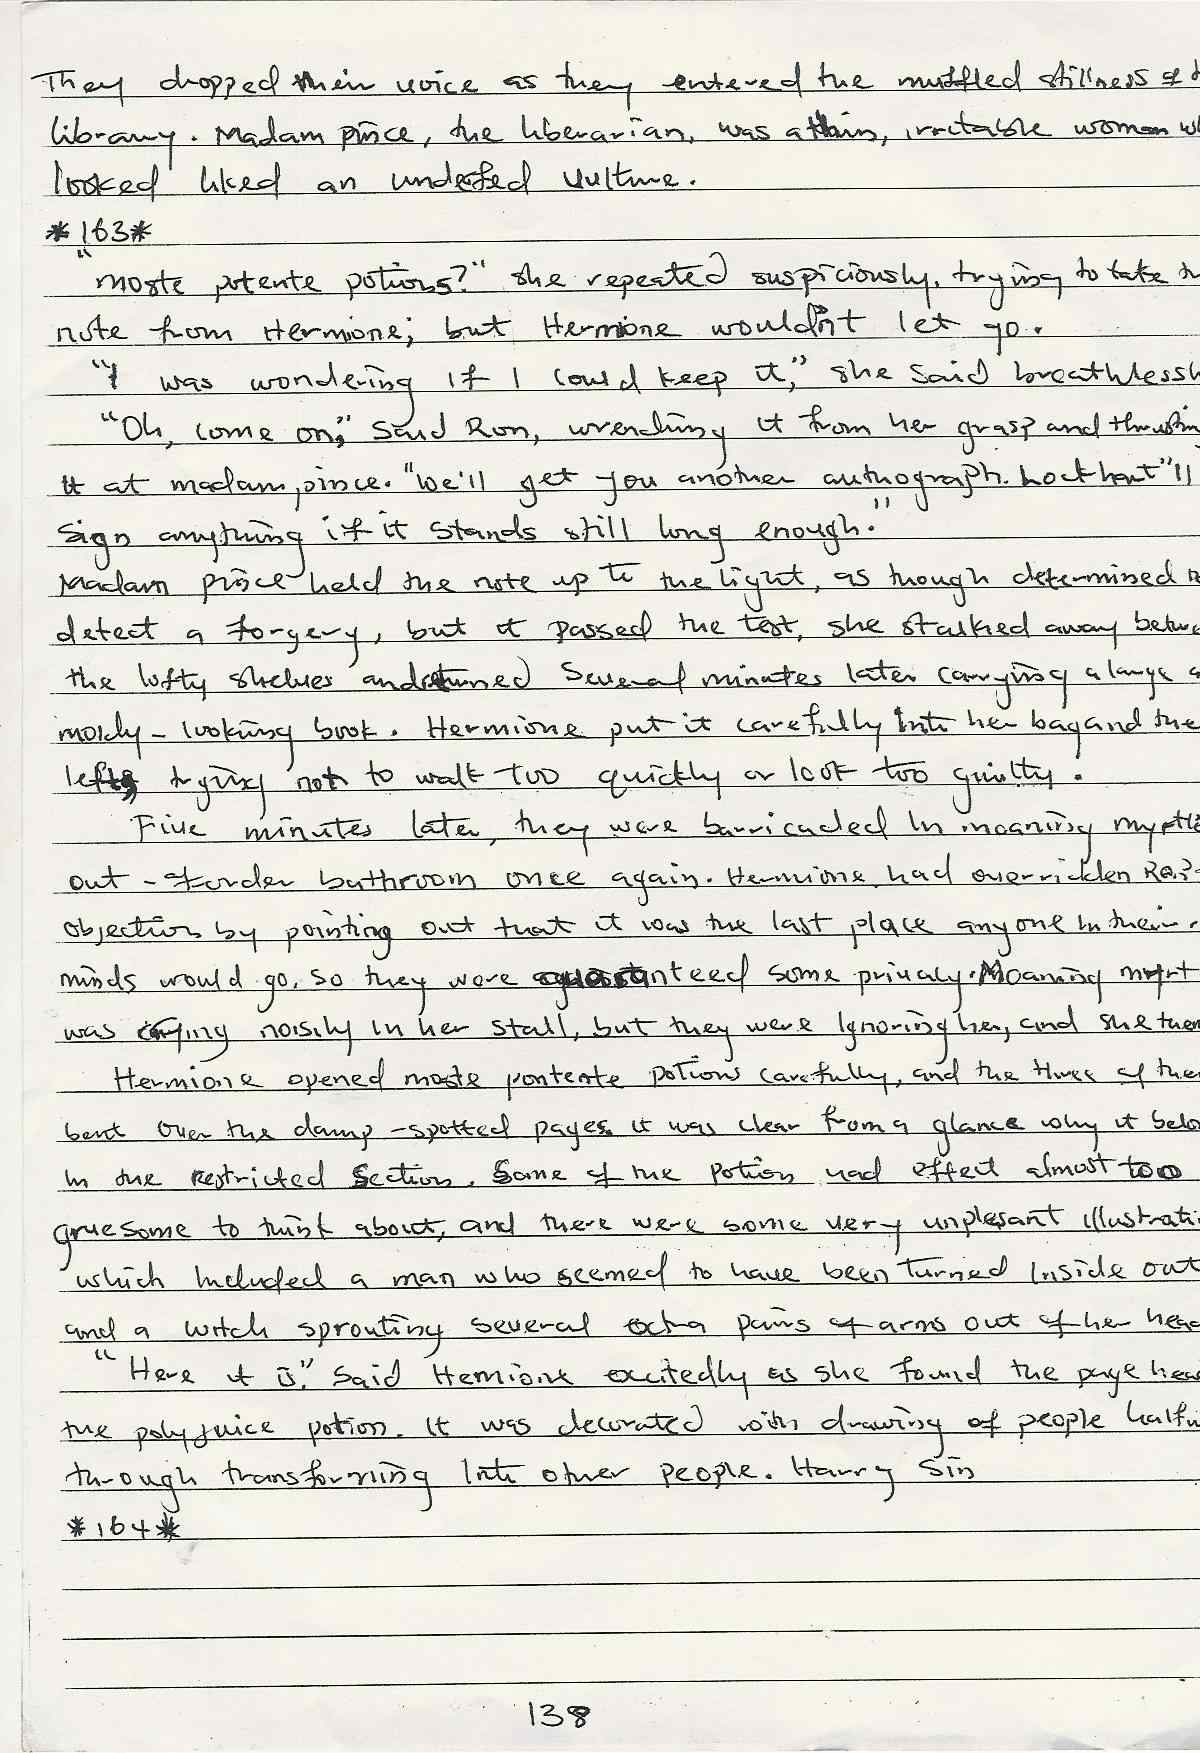 They dropped their voice as they entered the muffled stillness of t
library. Madam pince, the liberarian, was a thin, irritable woman wh
looked liked an underfed vulture.
*163*
"moste potente potions?" she repeated suspiciously, trying to take th
note from Hermione; but Hermione wouldn't let go.
"I was wondering if I could keep it," she said breathlessly
"Oh, come on," said Ron, wrenching it from her grasp and thrustin
it at madam pince. "We'll get you another authograph. Lockhart"ll
sign anything if it stands still long enough."
Madam pince held the note up to the light, as though determined to
detect a forgery, but it passed the test, she stalked away betwe
the lofty shelves and returned several minutes later carrying a large a
moldy-looking book. Hermione put it carefully into her bag and the
left, trying not to walk too quickly or look too guilty.
Five minutes later, they were barricaded in moaning myrtle
out-of-order bathroom once again. Hermione had overridden Ron
objections by pointing out that it was the last place anyone in their r
minds would go, so they were guaranteed some privacy. Moaning myrt
was crying noisily in her stall, but they were ignoring her, and she them
Hermione opened moste pontente potions carefully, and the three of the
bent over the damp-spotted pages. it was clear from a glance why it belo
in the restricted section. Some of the potion had effect almost too
gruesome to think about, and there were some very unplesant illustrati
which included a man who seemed to have been turned inside out
and a witch sprouting several extra pairs of arms out of her head
"Here it is." said Hermione excitedly as she found the page head
the polyjuice potion. It was decorated with drawing of people halfw
through transforming into other people. Harry sin
*164*
138